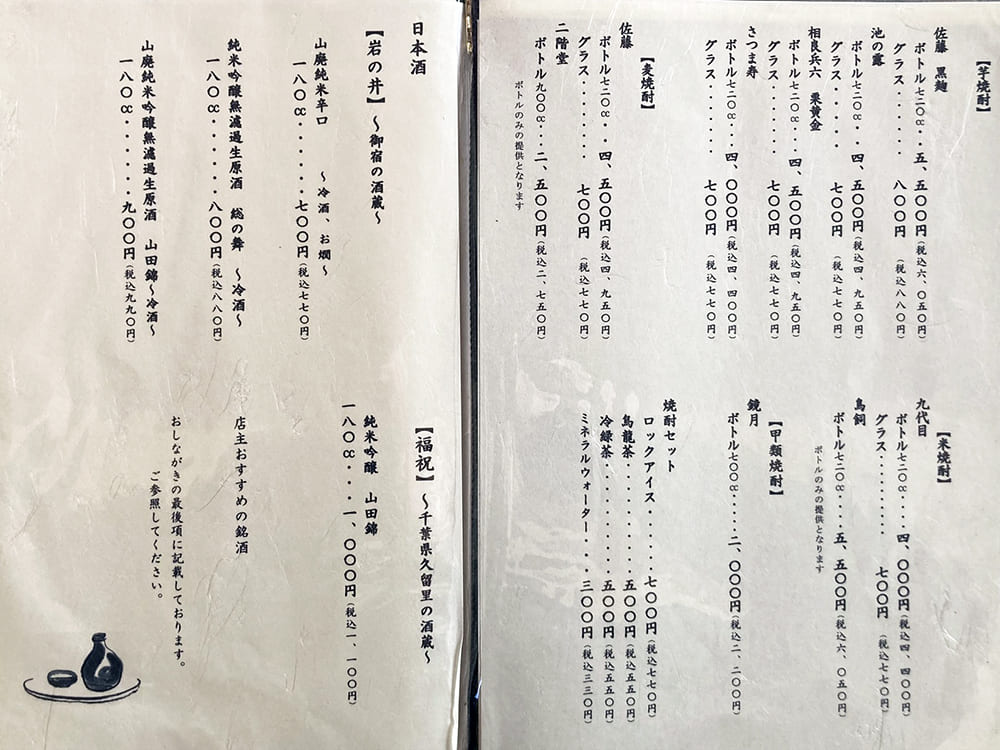 【芋焼酎】
佐藤 黒麹
ボトル七二〇cc・・五、五〇〇円(税込六、〇五〇円)
グラス・・・・・・八〇〇円(税込八八〇円)
池の露
ボトル七二〇cc・・四、五〇〇円(税込四、九五〇円)
グラス・・・・・・七〇〇円(税込七七〇円)
相良兵六 栗黄金
ボトル七二〇cc・・四、五〇〇円(税込四、九五〇円)
グラス・・・・・・七〇〇円(税込七七〇円)
さつま寿
ボトル七二〇cc・・四、〇〇〇円(税込四、四〇〇円)
グラス・・・・・・七〇〇円(税込七七〇円)
【麦焼酎】
佐藤
ボトル七二〇cc・・四、五〇〇円(税込四、九五〇円)
グラス・・・・・・七〇〇円(税込七七〇円)
二階堂
ボトル九〇〇cc・・二、五〇〇円(税込二、七五〇円)
ボトルのみの提供となります
【米焼酎】
九代目
ボトル七二〇cc・・・・四、〇〇〇円(税込四、四〇〇円)
グラス・・・・・・・・七〇〇円(税込七七〇円)
鳥飼
ボトル七二〇cc・・・・五、五〇〇円(税込六、〇五〇円)
ボトルのみの提供となります
【甲類焼酎】
鏡月
ボトル七〇〇cc・・・・・二、〇〇〇円(税込二、二〇〇円)
焼酎セット
ロックアイス・・・・・七〇〇円(税込七七〇円)
烏龍茶・・・・・・・・五〇〇円(税込五五〇円)
冷緑茶・・・・・・・・五〇〇円(税込五五〇円)
ミネラルウォーター・・・三〇〇円(税込三三〇円)
日本酒
【岩の井】〜御宿の酒蔵〜
山廃純米辛口 〜冷酒、お燗〜
一八〇cc・・・・・七〇〇円(税込七七〇円)
純米吟醸無濾過生原酒 総の舞 〜冷酒〜
一八〇cc・・・・・八〇〇円(税込八八〇円)
山廃純米吟醸無濾過生原酒 山田錦〜冷酒〜
一八〇cc・・・・・・・九〇〇円(税込九九〇円)
【福祝】〜千葉県久留里の酒蔵〜
純米吟醸 山田錦
一八〇cc・・・一、〇〇〇円(税込一、一〇〇円)
店主おすすめの銘酒
おしながきの最後項に記載しております。
ご参照してください。